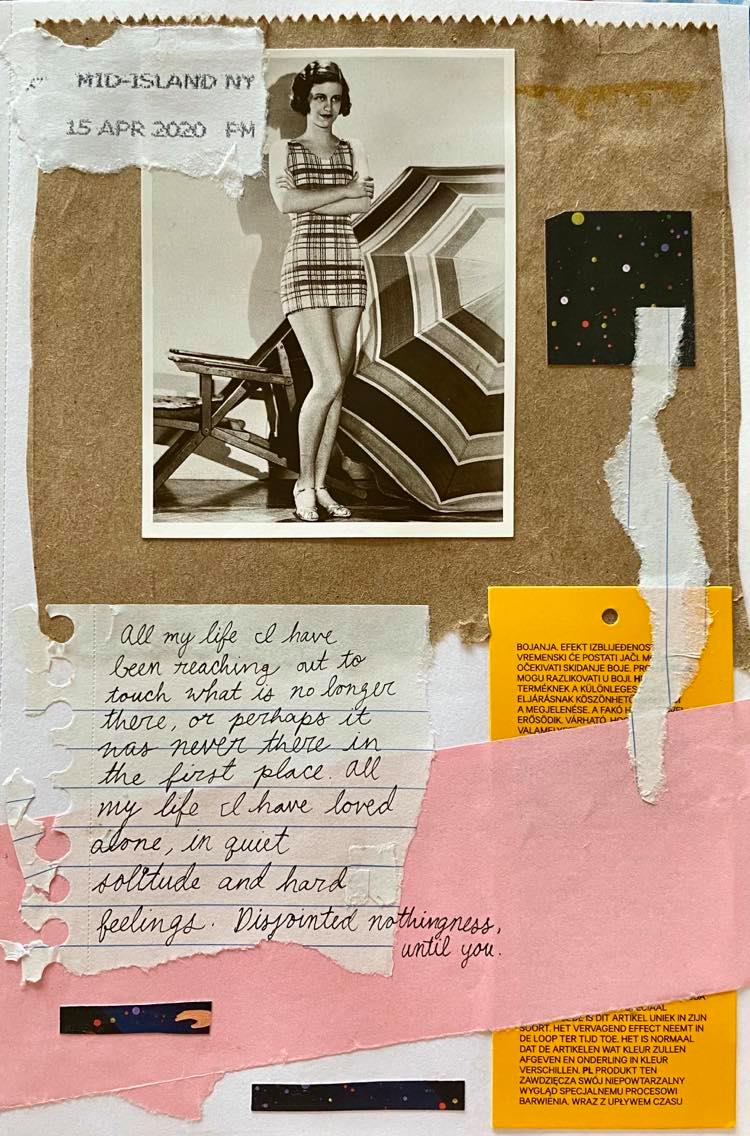 MID-ISLAND NY
15 APR 2020 PM
All my life I have
been reaching out to
touch what is no longer
there, or perhaps it
was never there in
the first place. All
my life I have loved
alone, in quiet
solitude and hard
feelings. Disjointed nothingness,
until you.
BOJANJA. EFEKT IZBLIJEĐENOS
VREMENSKI ĆE POSTATI JAČI.
OČEKIVATI SKIDANJE BOJE. PRO
MOGU RAZLIKOVATI U BOJI. HU
TERMÉKNEK A KÜLÖNLEGES
ELJÁRÁSNAK KÖSZÖNHETŐ
A MEGJELENÉSE. A FAKÓ H
ERŐSÖDIK. VÁRHATÓ, HOG
VALAMELY
SPECIAAL
IS DIT ARTIKEL UNIEK IN ZIJN
SOORT. HET VERVAGEND EFFECT NEEMT IN
DE LOOP TER TIJD TOE. HET IS NORMAAL
DAT DE ARTIKELEN WAT KLEUR ZULLEN
AFGEVEN EN ONDERLING IN KLEUR
VERSCHILLEN. PL PRODUKT TEN
ZAWDZIĘCZA SWÓJ NIEPOWTARZALNY
WYGLĄD SPECJALNEMU PROCESOWI
BARWIENIA. WRAZ Z UPŁYWEM CZASU